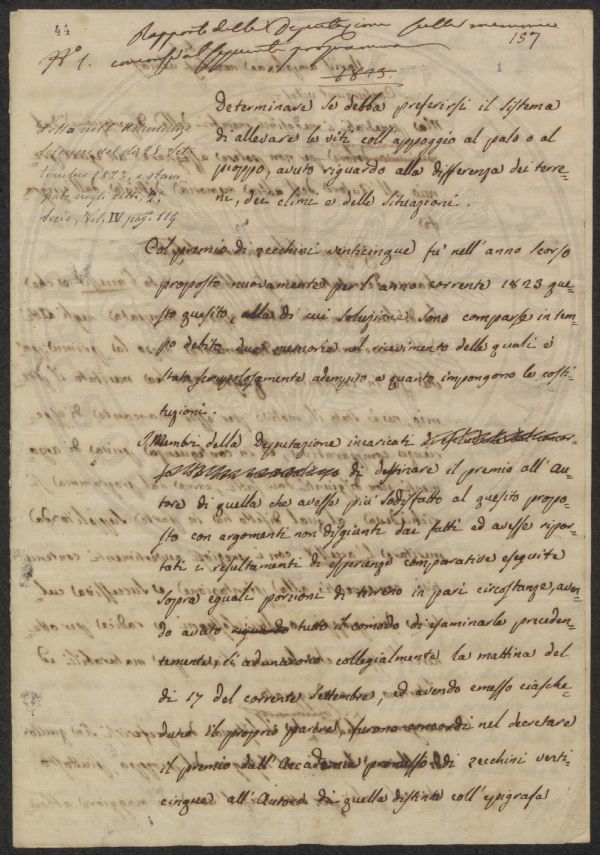 44
Rapporto della Deputazione sulle memorie
157
N.° 1. concorse al seguente programma
1823.
Determinare se debba preferirsi il sistema
di allevare le viti coll'appoggio al palo o al
pioppo, avuto riguardo alla differenza dei terre=
ni, dei climi e delle situazioni.
Letto nell'Adunanza
del dì 28 Set
tembre 1823, e stam
pato negli Atti,
Serie, Vol. IV pag. 114
Col premio di zecchini venticinque fu nell'anno scorso
proposto nuovamente per l'anno corrente 1823 que=
sto quesito, alla di cui soluzione sono comparse in tem=
po debito due memorie nel ricevimento delle quali è
stato scrupolosamente adempito a quanto impongono le costi=
tuzioni.
I Membri della Deputazione incaricati
di destinare il premio all'Au=
tore di quella che avesse più sodisfatto al quesito propo=
sto con argomenti non disgiunti dai fatti ed avesse ripor=
tati i resultamenti di esperienze comparative eseguite
sopra eguali porzioni di terreno in pari circostanze, aven=
do avuto tutto il comodo di esaminarle preceden=
temente, si adunarono collegialmente la mattina del
dì 17 del corrente Settembre, ed avendo emesso ciasche=
duno il proprio parere, furono concordi nel decretare
il premio dall'Accademia promesso di zecchini venti=
cinque all'Autore di quella distinta coll'epigrafe